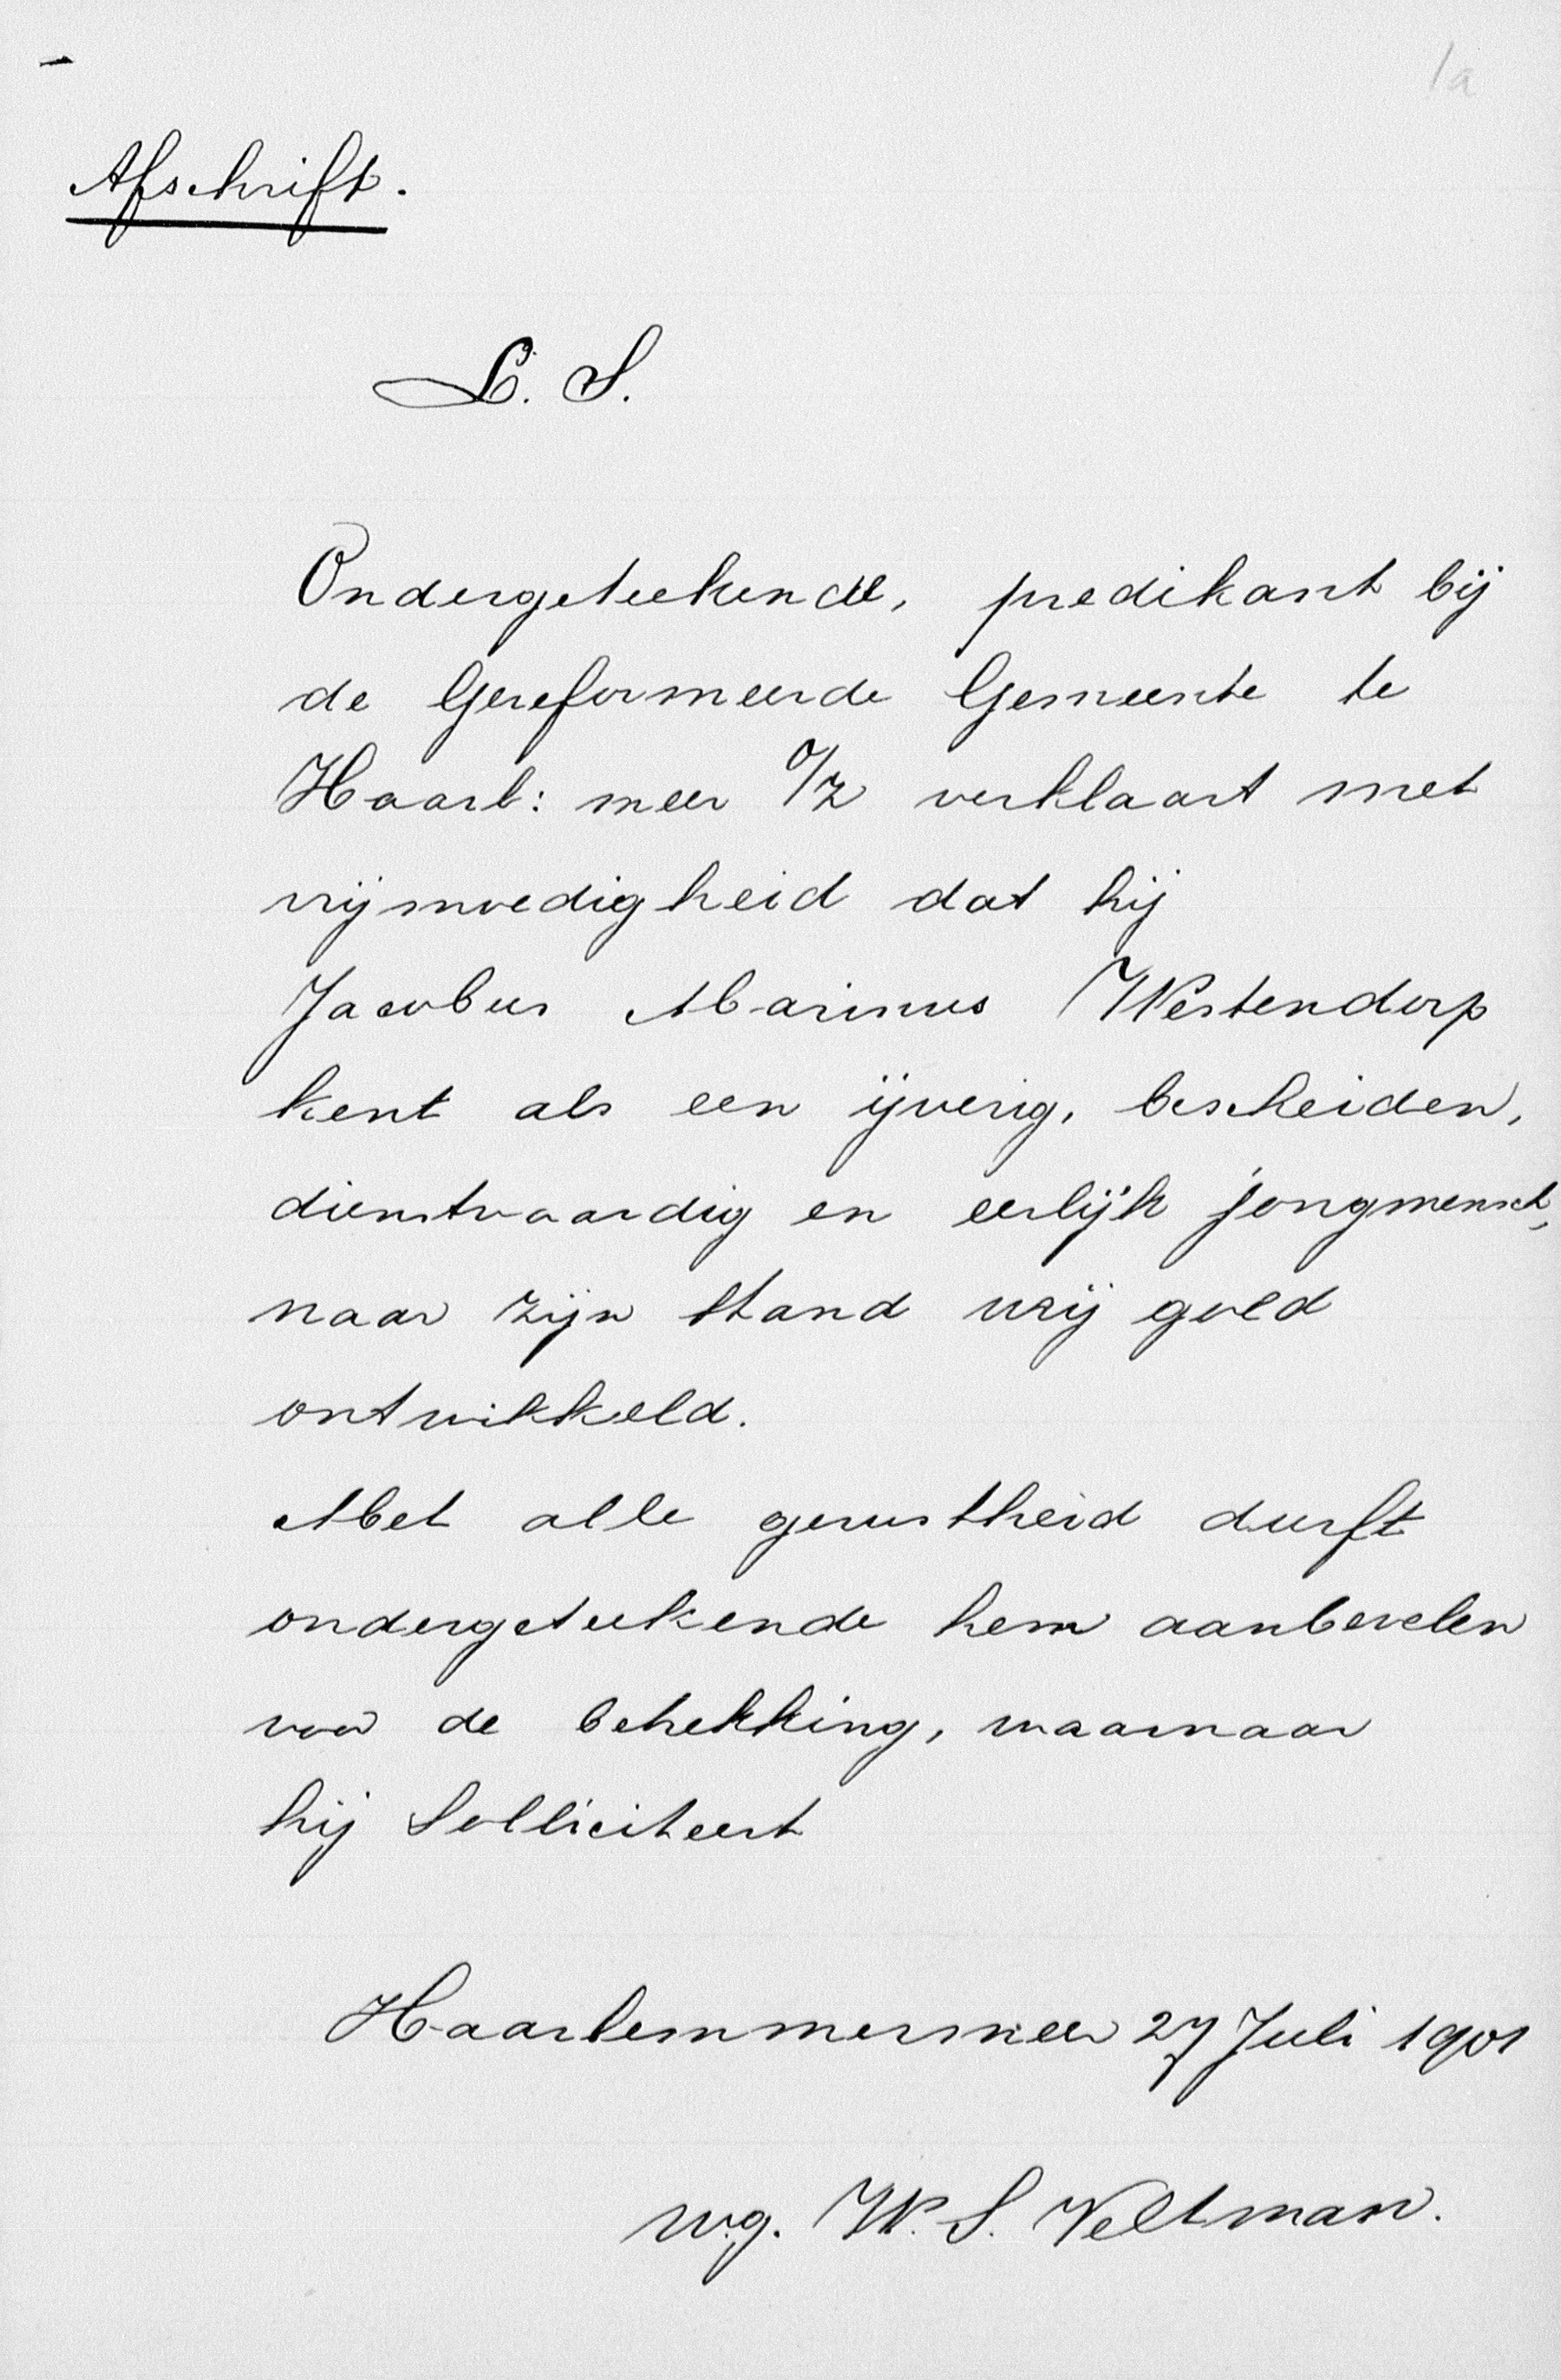 1a
Afschrift.
L. S.
Ondergeteekende, predikant bij
de Gereformeerde Gemeente te
Haarl: meer O/Z verklaart met
vrijmoedigheid dat hij
Jacobus Marinus Westendorp
kent als een ijverig, bescheiden,
dienstvaardig en eerlijk jongmensch,
naar zijn stand vrij goed
ontwikkeld.
Met alle gerustheid durft
ondergeteekende hem aanbevelen
voor de betrekking, waarnaar
hij Solliciteert
Haarlemmermeer 27 Juli 1901
w.g. W. S. Veltman.